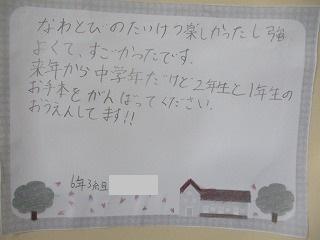 なわとびのたいけつ楽しかったし強
よくて、すごかったです.
来年から中学年だけど2年生と1年生の
お手本をがんばってください.
おうえんしてます!!
6年3組